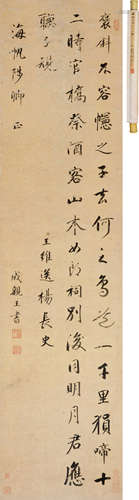 褒斜不容幰之子去何之鳥道一千里猿啼十
二時官橋祭酒客山木女郎祠別後同明月君應
聽子規
王維送楊長史
海帆陽卿 正
成親王書